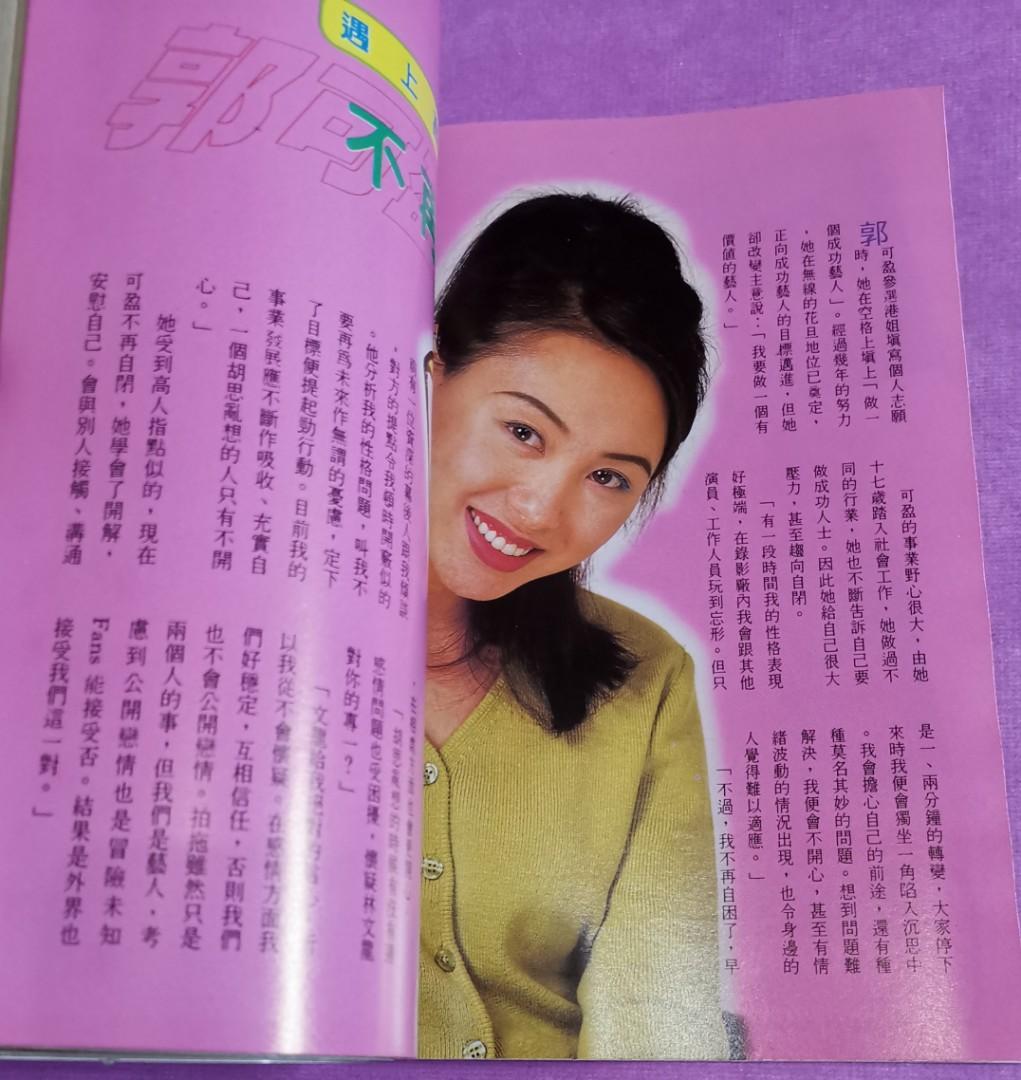 遇上
郭可盈
不再
郭可盈參選港姐填寫個人志願
時，她在空格上填上「做一
個成功藝人」。經過幾年的努力
，她在無線的花旦地位已奠定，
正向成功藝人的目標邁進，但她
卻改變主意說：「我要做一個有
價值的藝人。」
可盈的事業野心很大，由她
十七歲踏入社會工作，她做過不
同的行業，她也不斷告訴自己要
做成功人士。因此她給自己很大
壓力，甚至趨向自閉。
「有一段時間我的性格表現
好極端，在錄影廠內我會跟其他
演員、工作人員玩到忘形。但只
是一、兩分鐘的轉變，大家停下
來時我便會獨坐一角陷入沉思中
。我會擔心自己的前途，還有種
種莫名其妙的問題。想到問題難
解決，我便會不開心，甚至有情
緒波動的情況出現，也令身邊的
人覺得難以適應。」
「不過，我不再自困了，早
，對方的提點令我頓時開竅似的
。他分析我的性格問題，叫我不
要再為未來作無謂的憂慮，定下
了目標便提起勁行動。目前我的
事業發展應不斷作吸收、充實自
己，一個胡思亂想的人只有不開
心。」
她受到高人指點似的，現在
可盈不再自閉，她學會了開解，
安慰自己。會與別人接觸、溝通
感情問題也受困擾，懷疑林文龍
對你的專一？」
以我從不會懷疑。在感情方面我
們好穩定，互相信任，否則我們
也不會公開戀情。拍拖雖然只是
兩個人的事，但我們是藝人，考
慮到公開戀情也是冒險未知
Fans 能接受否。結果是外界也
接受我們這一對。」